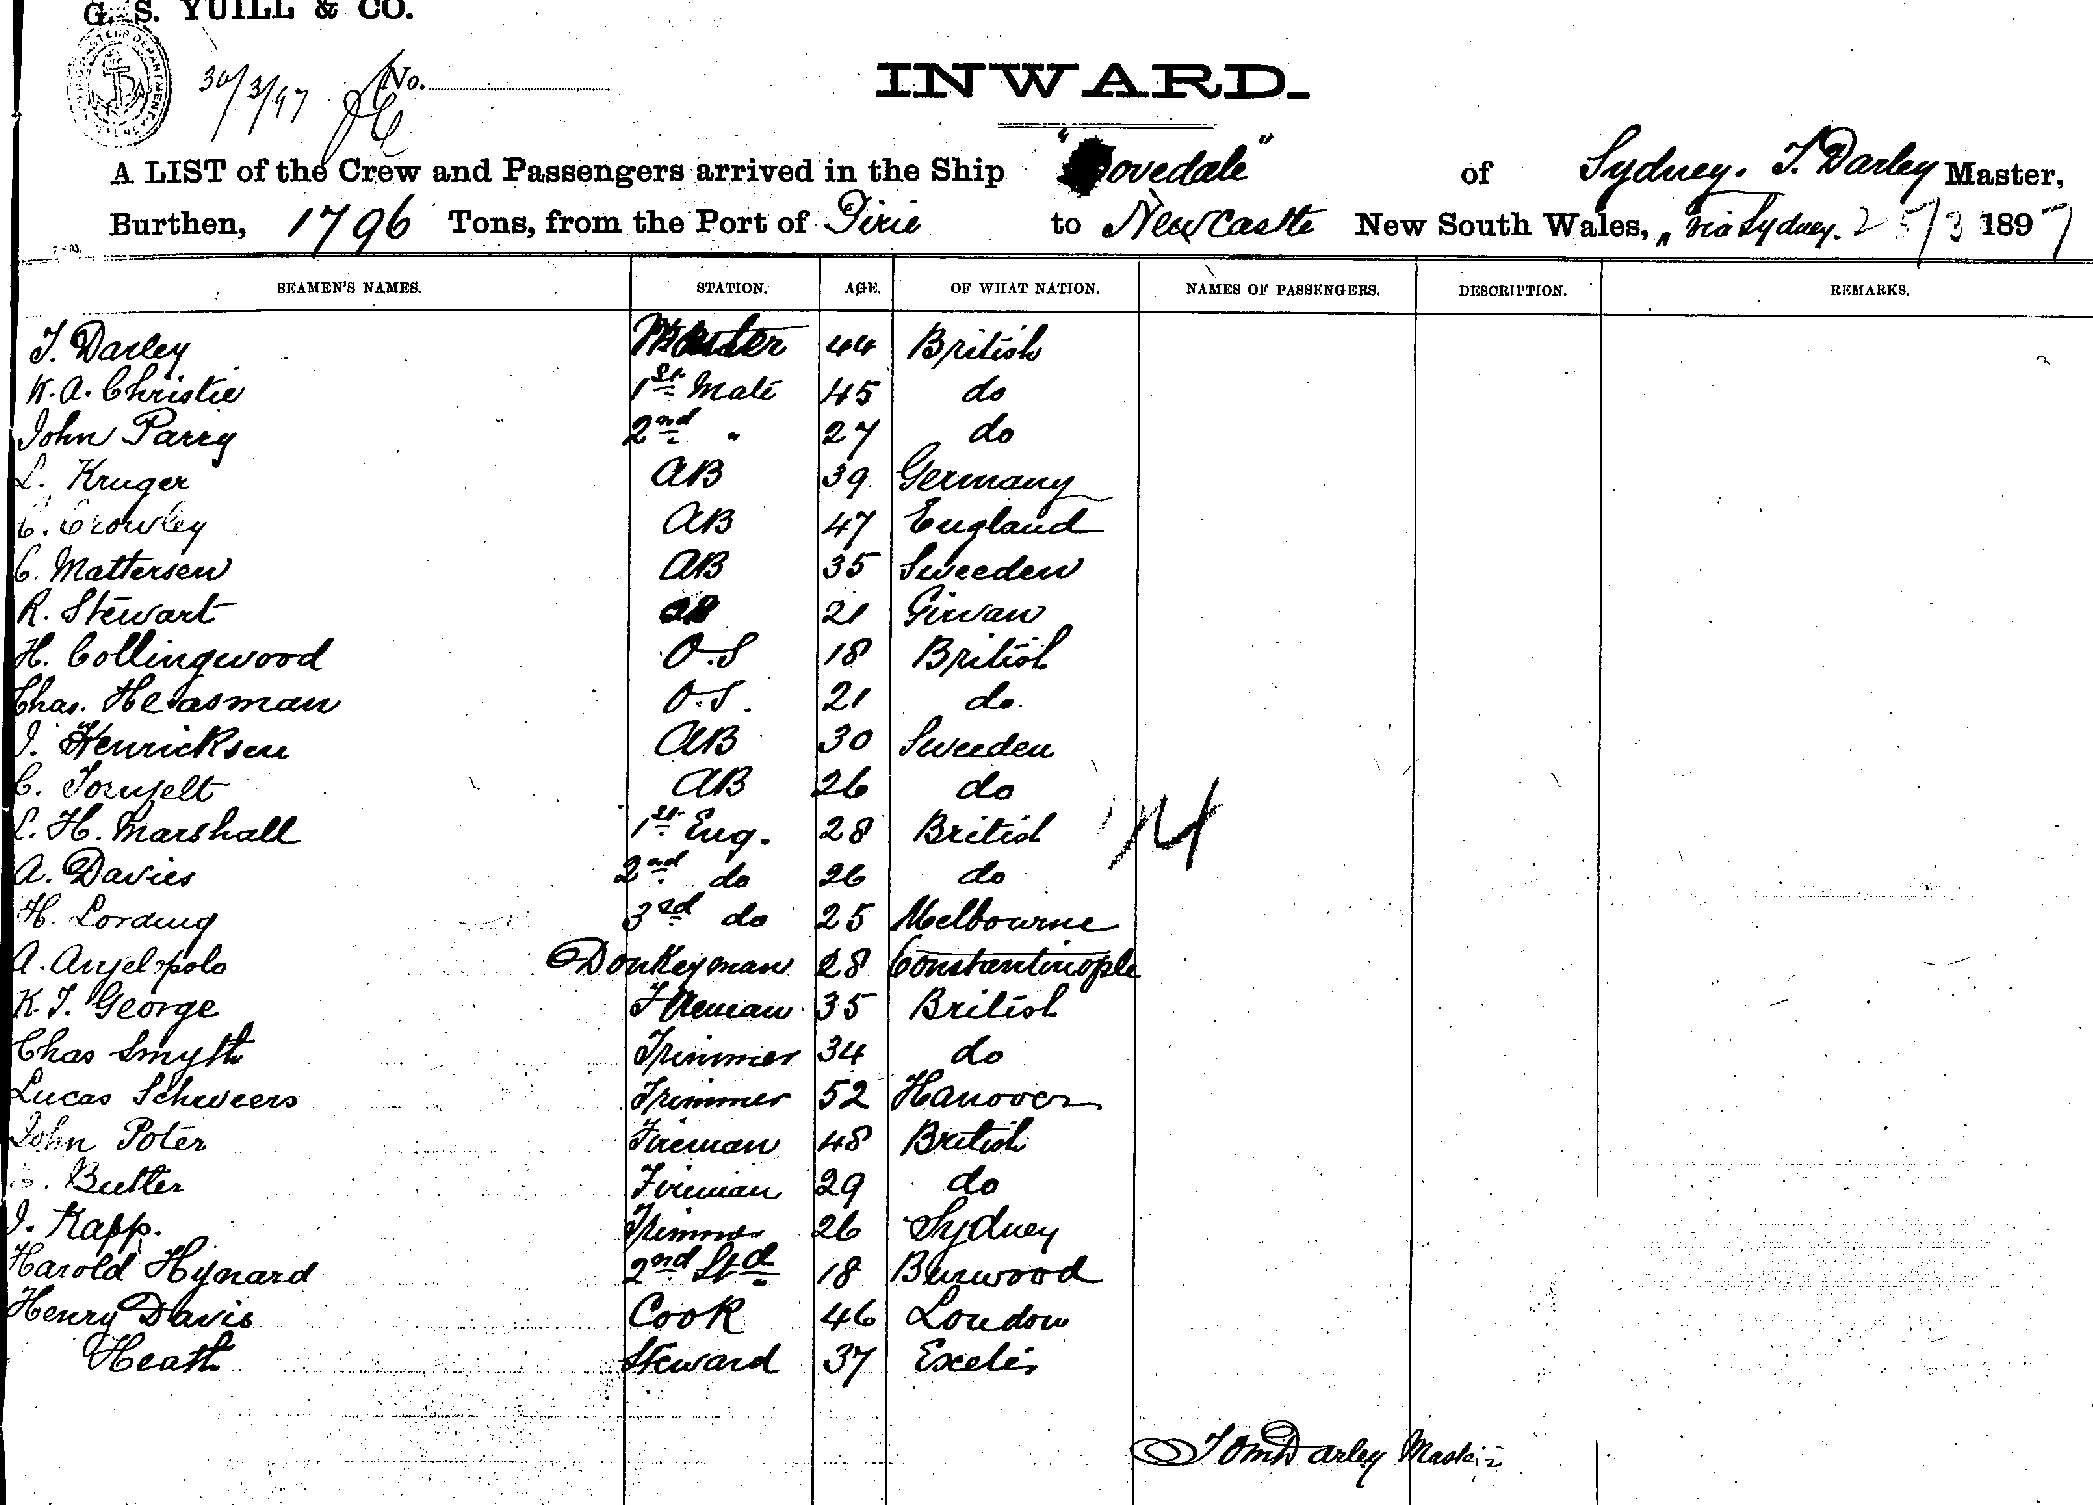 G. S. YUILL & CO.
30/3/97 No.
INWARD.
A LIST of the Crew and Passengers arrived in the Ship "Dovedale" of Sydney. T. Darley Master,
Burthen, 1796 Tons, from the Port of Pirie to Newcastle New South Wales, via Sydney. 25/3 1897
SEAMEN'S NAMES. STATION. AGE. OF WHAT NATION. NAMES OF PASSENGERS. DESCRIPTION. REMARKS.
T. Darley Master 44 British
K. A. Christie 1st Mate 45 do
John Parry 2nd " 27 do
L. Kruger AB 39 Germany
C. Crowley AB 47 England
C. Mattersen AB 35 Sweeden
R. Stewart AB 21 Girvan
H. Collingwood O.S 18 British
Chas. Heasman O.S. 21 do.
J. Henricksen AB 30 Sweeden
C. AB 26 do
L. H. Marshall 1st Eng. 28 British
A. Davies 2nd do 26 do
H. Lording 3rd do 25 Melbourne
A. Donkeyman 28 Constantinople
K. T. George Fireman 35 British
Chas Smyth Trimmer 34 do
Lucas Schweers Trimmer 52 Hanover
John Poter Fireman 48 British
Butler Fireman 29 do
J. Rapp. Trimmer 26 Sydney
Harold Hynard 2nd Std 18 Burwood
Henry Davis Cook 46 London
Heath Steward 37 Exeter
Tom Darley Master